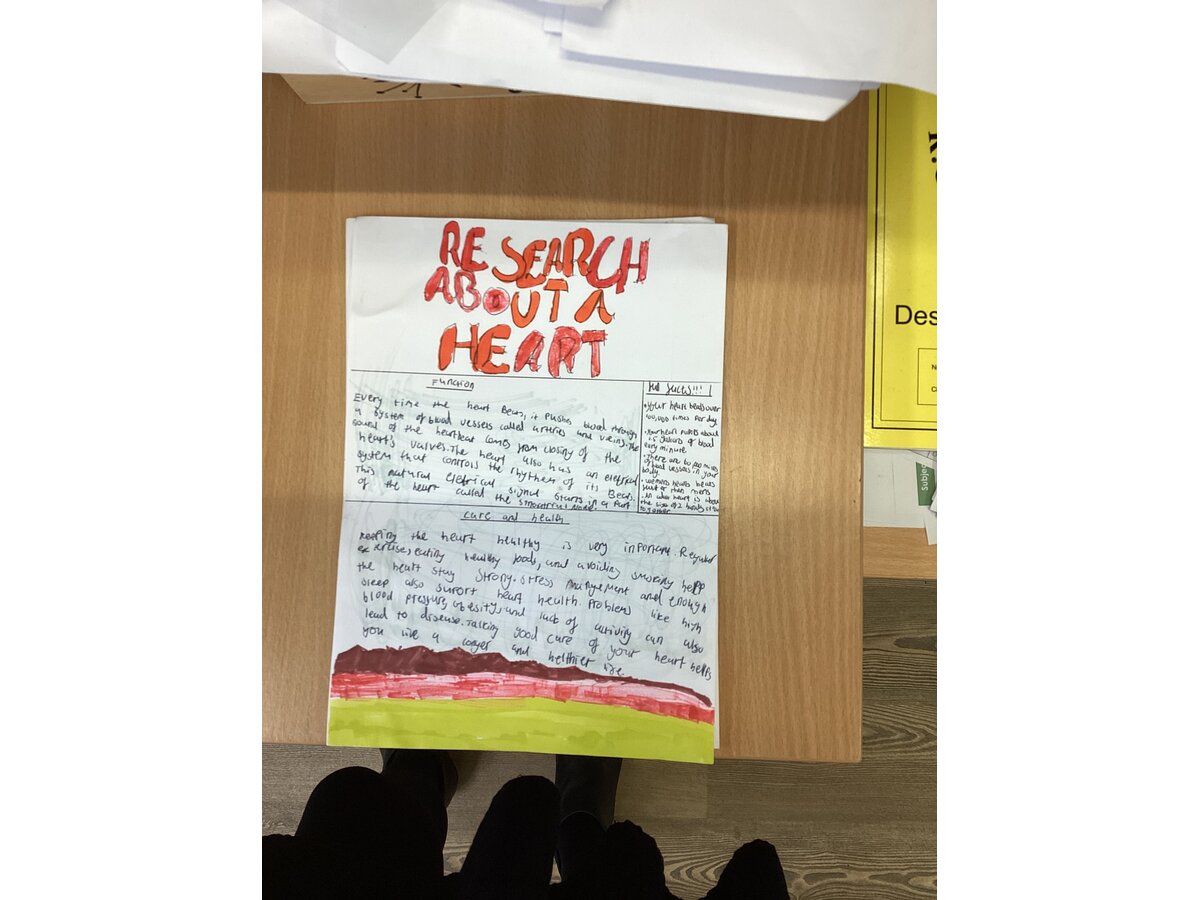 RESEARCH
ABOUT A
HEART
Function
Every time the heart Bears, it pushes blood through
a system of blood vessels called arteries and veins. The
sound of the heartbeat comes from closing of the
heart's valves. The heart also has an eletrical
system that controls the rhythem of its Bears.
This natural eletrical signal starts in a part
of the heart called the Node.
fun facts!!!
•your heart beats over
100,000 times per day
•Your heart pumps about
1.5 gallons of blood
every minute
•There are 60,000 miles
of blood vessels in your
body
•womens hearts bears
than mens
•An heart is about
the size of 2 hands
together
care and health
keeping the heart healthy is very important. Regular
exercise, eating healthy foods, and avoiding smoking help
the heart stay strong. stress management and enough
sleep also suport heart health. Problems like high
blood pressure, obesity, and lack of activity can also
lead to disease. Talking good care of your heart helps
you live a longer and helthier life.
Des
Subjec